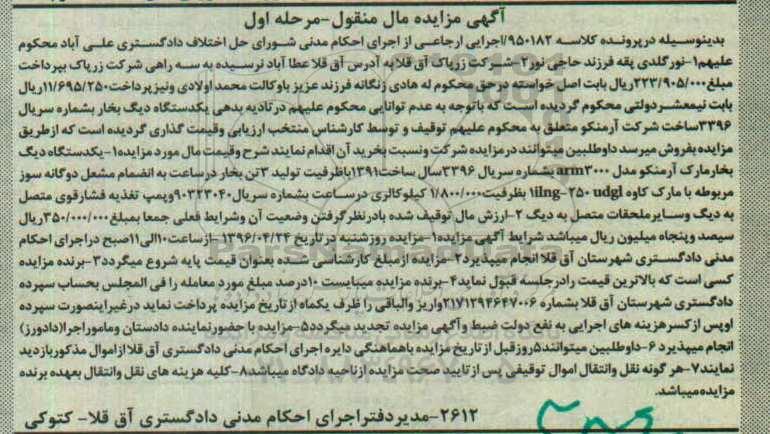 آگهی مزایده مال منقول-مرحله اول
بدینوسیله درپرونده کلاسه ۹۵۰۱۸۲/اجرایی ارجاعی از اجرای احکام مدنی شورای حل اختلاف دادگستری علی آباد محکوم
علیهم۱-نورگلدی یقه فرزند حاجی نور۲-شرکت زرپاک آق قلا به آدرس آق قلا عطا آباد نرسیده به سه راهی شرکت زرپاک بپرداخت
مبلغ۲۲۳/۹۰۵/۰۰۰ریال بابت اصل خواسته درحق محکوم له هادی زنگانه فرزند عزیز باوکالت محمد اولادی ونیز پرداخت۱۱/۶۹۵/۲۵۰ریال
بابت نیمعشر دولتی محکوم گردیده است که باتوجه به عدم توانایی محکوم علیهم درتادیه بدهی یکدستگاه دیگ بخار بشماره سریال
۳۳۹۶ساخت شرکت آرمنکو متعلق به محکوم علیهم توقیف و توسط کارشناس منتخب ارزیابی وقیمت گذاری گردیده است که ازطریق
مزایده بفروش میرسد داوطلبین میتوانند درمزایده شرکت ونسبت بخرید آن اقدام نمایند شرح وقیمت مال مورد مزایده۱-یکدستگاه دیگ
بخارمارک آرمنکو مدل arm۳۰۰۰ بشماره سریال ۳۳۹۶سال ساخت۱۳۹۱باظرفیت تولید ۳تن بخار درساعت به انضمام مشعل دوگانه سوز
مربوطه با مارک کاوه ۱ilng-۲۵۰ udgl بظرفیت۱/۸۰۰/۰۰۰ کیلوکالری درساعت بشماره سریال۹۰۳۲۳۰۴۰وپمپ تغذیه فشارقوی متصل
به دیگ وسایرملحقات متصل به دیگ ۲-ارزش مال توقیف شده بادرنظرگرفتن وضعیت آن وشرایط فعلی جمعا بمبلغ۳۵۰/۰۰۰/۰۰۰ریال
سیصد وپنجاه میلیون ریال میباشد شرایط آگهی مزایده۱-مزایده روزشنبه درتاریخ ۱۳۹۶/۰۴/۲۴-ازساعت۱۰الی۱۱صبح دراجرای احکام
مدنی دادگستری شهرستان آق قلا انجام میپذیرد۲-مزایده ازمبلغ کارشناسی شده بعنوان قیمت پایه شروع میگردد۳-برنده مزایده
کسی است که بالاترین قیمت رادرجلسه قبول نماید۴-برنده مزایده میبایست ۱۰درصد مبلغ مورد معامله را فی المجلس بحساب سپرده
دادگستری شهرستان آق قلا بشماره ۲۱۷۱۲۹۴۶۴۷۰۰۶واریز والباقی را ظرف یکماه از تاریخ مزایده پرداخت نماید درغیراینصورت سپرده
اوپس ازکسرهزینه های اجرایی به نفع دولت ضبط وآگهی مزایده تجدید میگردد۵-مزایده با حضورنماینده دادستان وماموراجرا(دادورز)
انجام میپذیرد ۶-داوطلبین میتوانند۵روزقبل از تاریخ مزایده باهماهنگی دایره اجرای احکام مدنی دادگستری آق قلا ازاموال مذکوربازدید
نمایند۷-هر گونه نقل وانتقال اموال توقیفی پس ازتایید صحت مزایده ازناحیه دادگاه میباشد۸-کلیه هزینه های نقل وانتقال بعهده برنده
مزایده میباشد.
۲۶۱۲-مدیردفتراجرای احکام مدنی دادگستری آق قلا- کتوکی